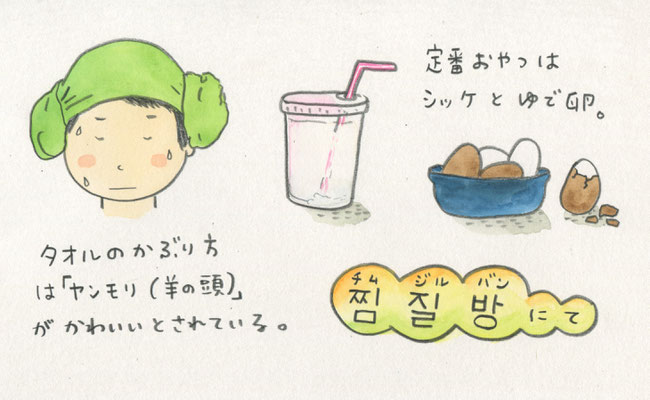 定番おやつは
シッケとゆで卵。
タオルのかぶり方
は「ヤンモリ(羊の頭)」
がかわいいとされている。
チム ジル バン
찜질방にて